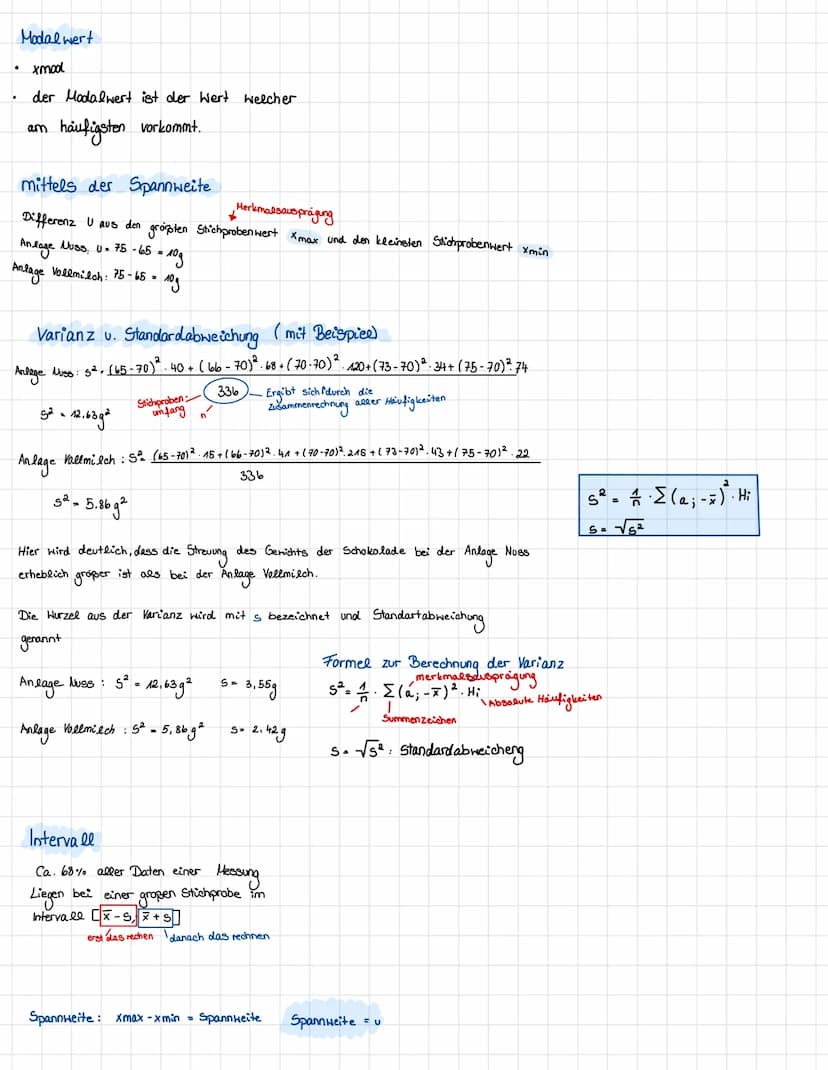 Modalwert
• xmod
• der Modalwert ist der Wert welcher
am häufigsten vorkommt.
mittels der Spannweite
Merkmalsausprägung
Differenz U aus den größten Stichprobenwert xmax und den kleinsten Stichprobenwert xmin
Anlage Nuss: U = 75 - 65 = 10g
Anlage Vollmilch: 75 - 65 = 10g
Varianz u. Standardabweichung (mit Beispiel)
Anlage Nuss: s² = (65-70)² · 40 + (66-70)² · 68 + (70-70)² · 120 + (73-70)² · 34 + (75-70)² · 74
Stichproben-umfang n 336 Ergibt sich durch die
Zusammenrechnung aller Häufigkeiten
s² = 12,63g²
Anlage Vollmilch: s² = (65-70)² · 15 + (66-70)² · 41 + (70-70)² · 215 + (73-70)² · 43 + (75-70)² · 22
336
s² = 5,86g²
s² = 1/n · Σ(ai - x̄)² · Hi
s = √s²
Hier wird deutlich, dass die Streuung des Gewichts der Schokolade bei der Anlage Nuss
erheblich größer ist als bei der Anlage Vollmilch.
Die Wurzel aus der Varianz wird mit s bezeichnet und Standartabweichung
genannt
Anlage Nuss: s² = 12,63g² s = 3,55g
Anlage Vollmilch: s² = 5,86g² s = 2,42g
Formel zur Berechnung der Varianz
merkmalsausprägung
s² = 1/n · Σ(ai - x̄)² · Hi
Absolute Häufigkeiten
Summenzeichen
s = √s² : Standardabweicheng
Intervall
Ca. 68% aller Daten einer Messung
Liegen bei einer großen Stichprobe im
Intervall [x̄ - s, x̄ + s]
erst das rechen danach das rechnen
Spannweite: xmax - xmin = Spannweite Spannweite = u